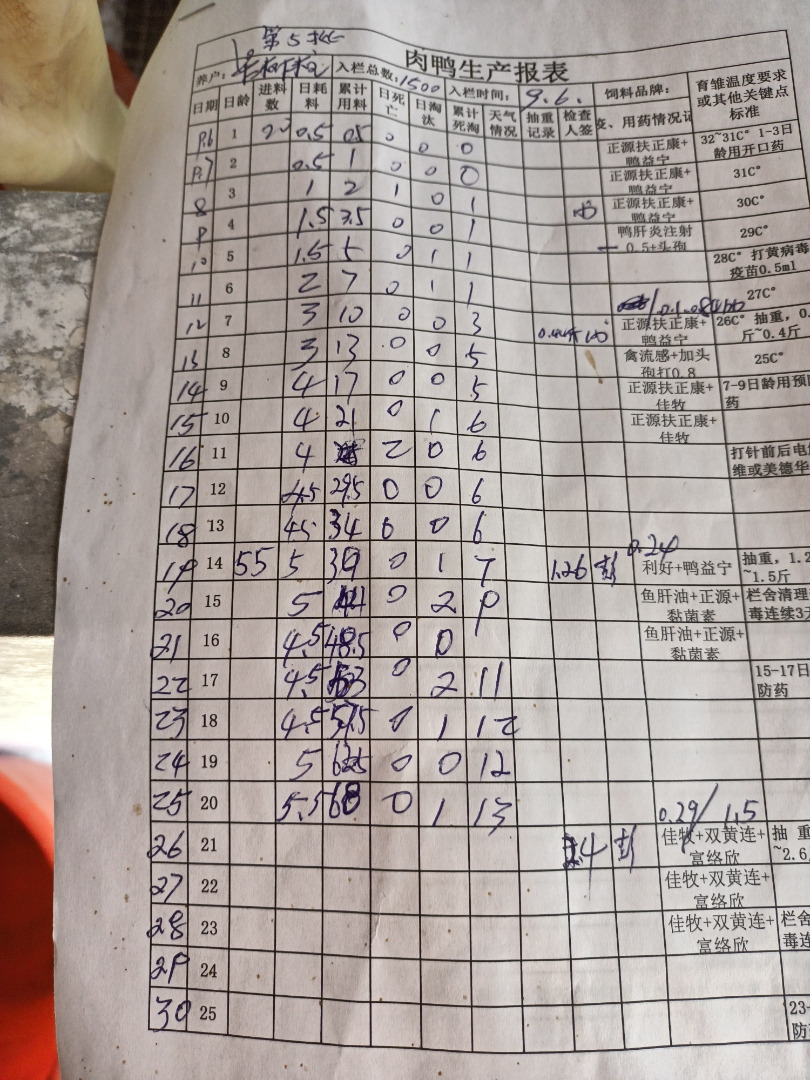 第5批
肉鸭生产报表
养户: 入栏总数:1500 入栏时间: 9.6. 饲料品牌: 育雏温度要求或其他关键点标准
日期 日龄 进料数 日耗料 累计用料 日死亡 日淘汰 累计死淘 天气情况 抽重记录 检查人签 疫、用药情况记
9.6 1 20 0.5 0.5 0 0 0 正源扶正康+鸭益宁 32~31C° 1-3日龄用开口药
9.7 2 0.5 1 0 0 0 正源扶正康+鸭益宁 31C°
8 3 1 2 1 0 1 正源扶正康+鸭益宁 30C°
9 4 1.5 3.5 0 0 1 鸭肝炎注射0.5+头孢 29C°
10 5 1.5 5 0 1 1 28C° 打黄病毒疫苗0.5ml
11 6 2 7 0 1 1 27C°
12 7 3 10 0 0 3 正源扶正康+鸭益宁 26C° 抽重, 0.斤~0.4斤
13 8 3 13 0 0 5 禽流感+加头孢打0.8 25C°
14 9 4 17 0 0 5 正源扶正康+佳牧 7-9日龄用预防药
15 10 4 21 0 1 6 正源扶正康+佳牧
16 11 4 2 0 6 打针前后电解维或美德华
17 12 4.5 29.5 0 0 6
18 13 4.5 34 0 0 6
19 14 55 5 39 0 1 7 1.26 彭 0.24 利好+鸭益宁 抽重, 1.2~1.5斤
20 15 5 44 0 2 9 鱼肝油+正源+黏菌素 栏舍清理毒连续3天
21 16 4.5 48.5 0 0 鱼肝油+正源+黏菌素
22 17 4.5 53 0 2 11 15-17日防药
23 18 4.5 57.5 0 1 12
24 19 5 62.5 0 0 12
25 20 5.5 68 0 1 13 0.29/1.5
26 21 彭 佳牧+双黄连+富络欣 抽重~2.6
27 22 佳牧+双黄连+富络欣
28 23 佳牧+双黄连+富络欣 栏舍毒连
29 24
30 25 23-防